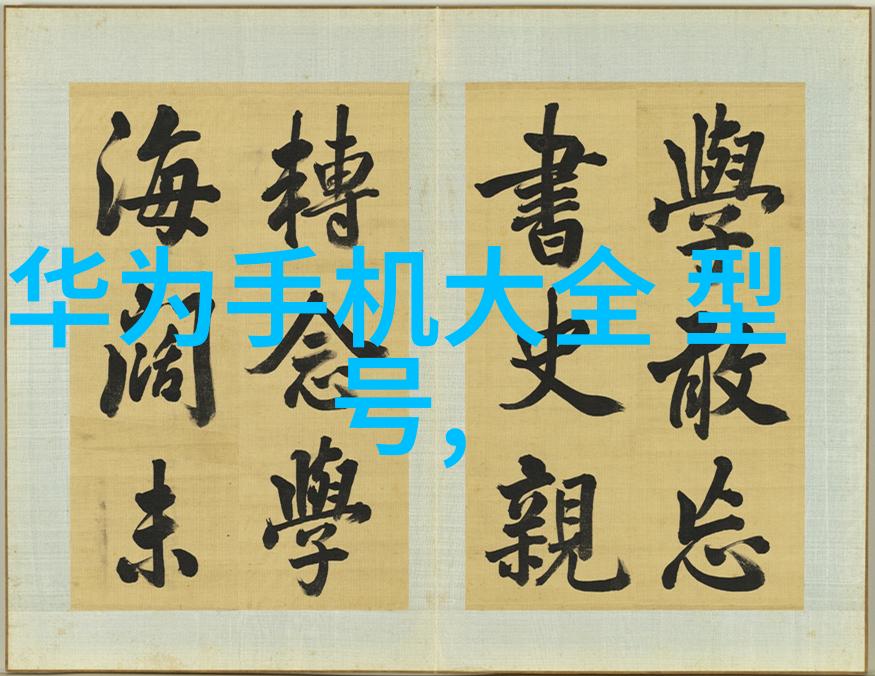 华为手机大全 型
号，
學敢忘
書史親
轉念學
海闊未